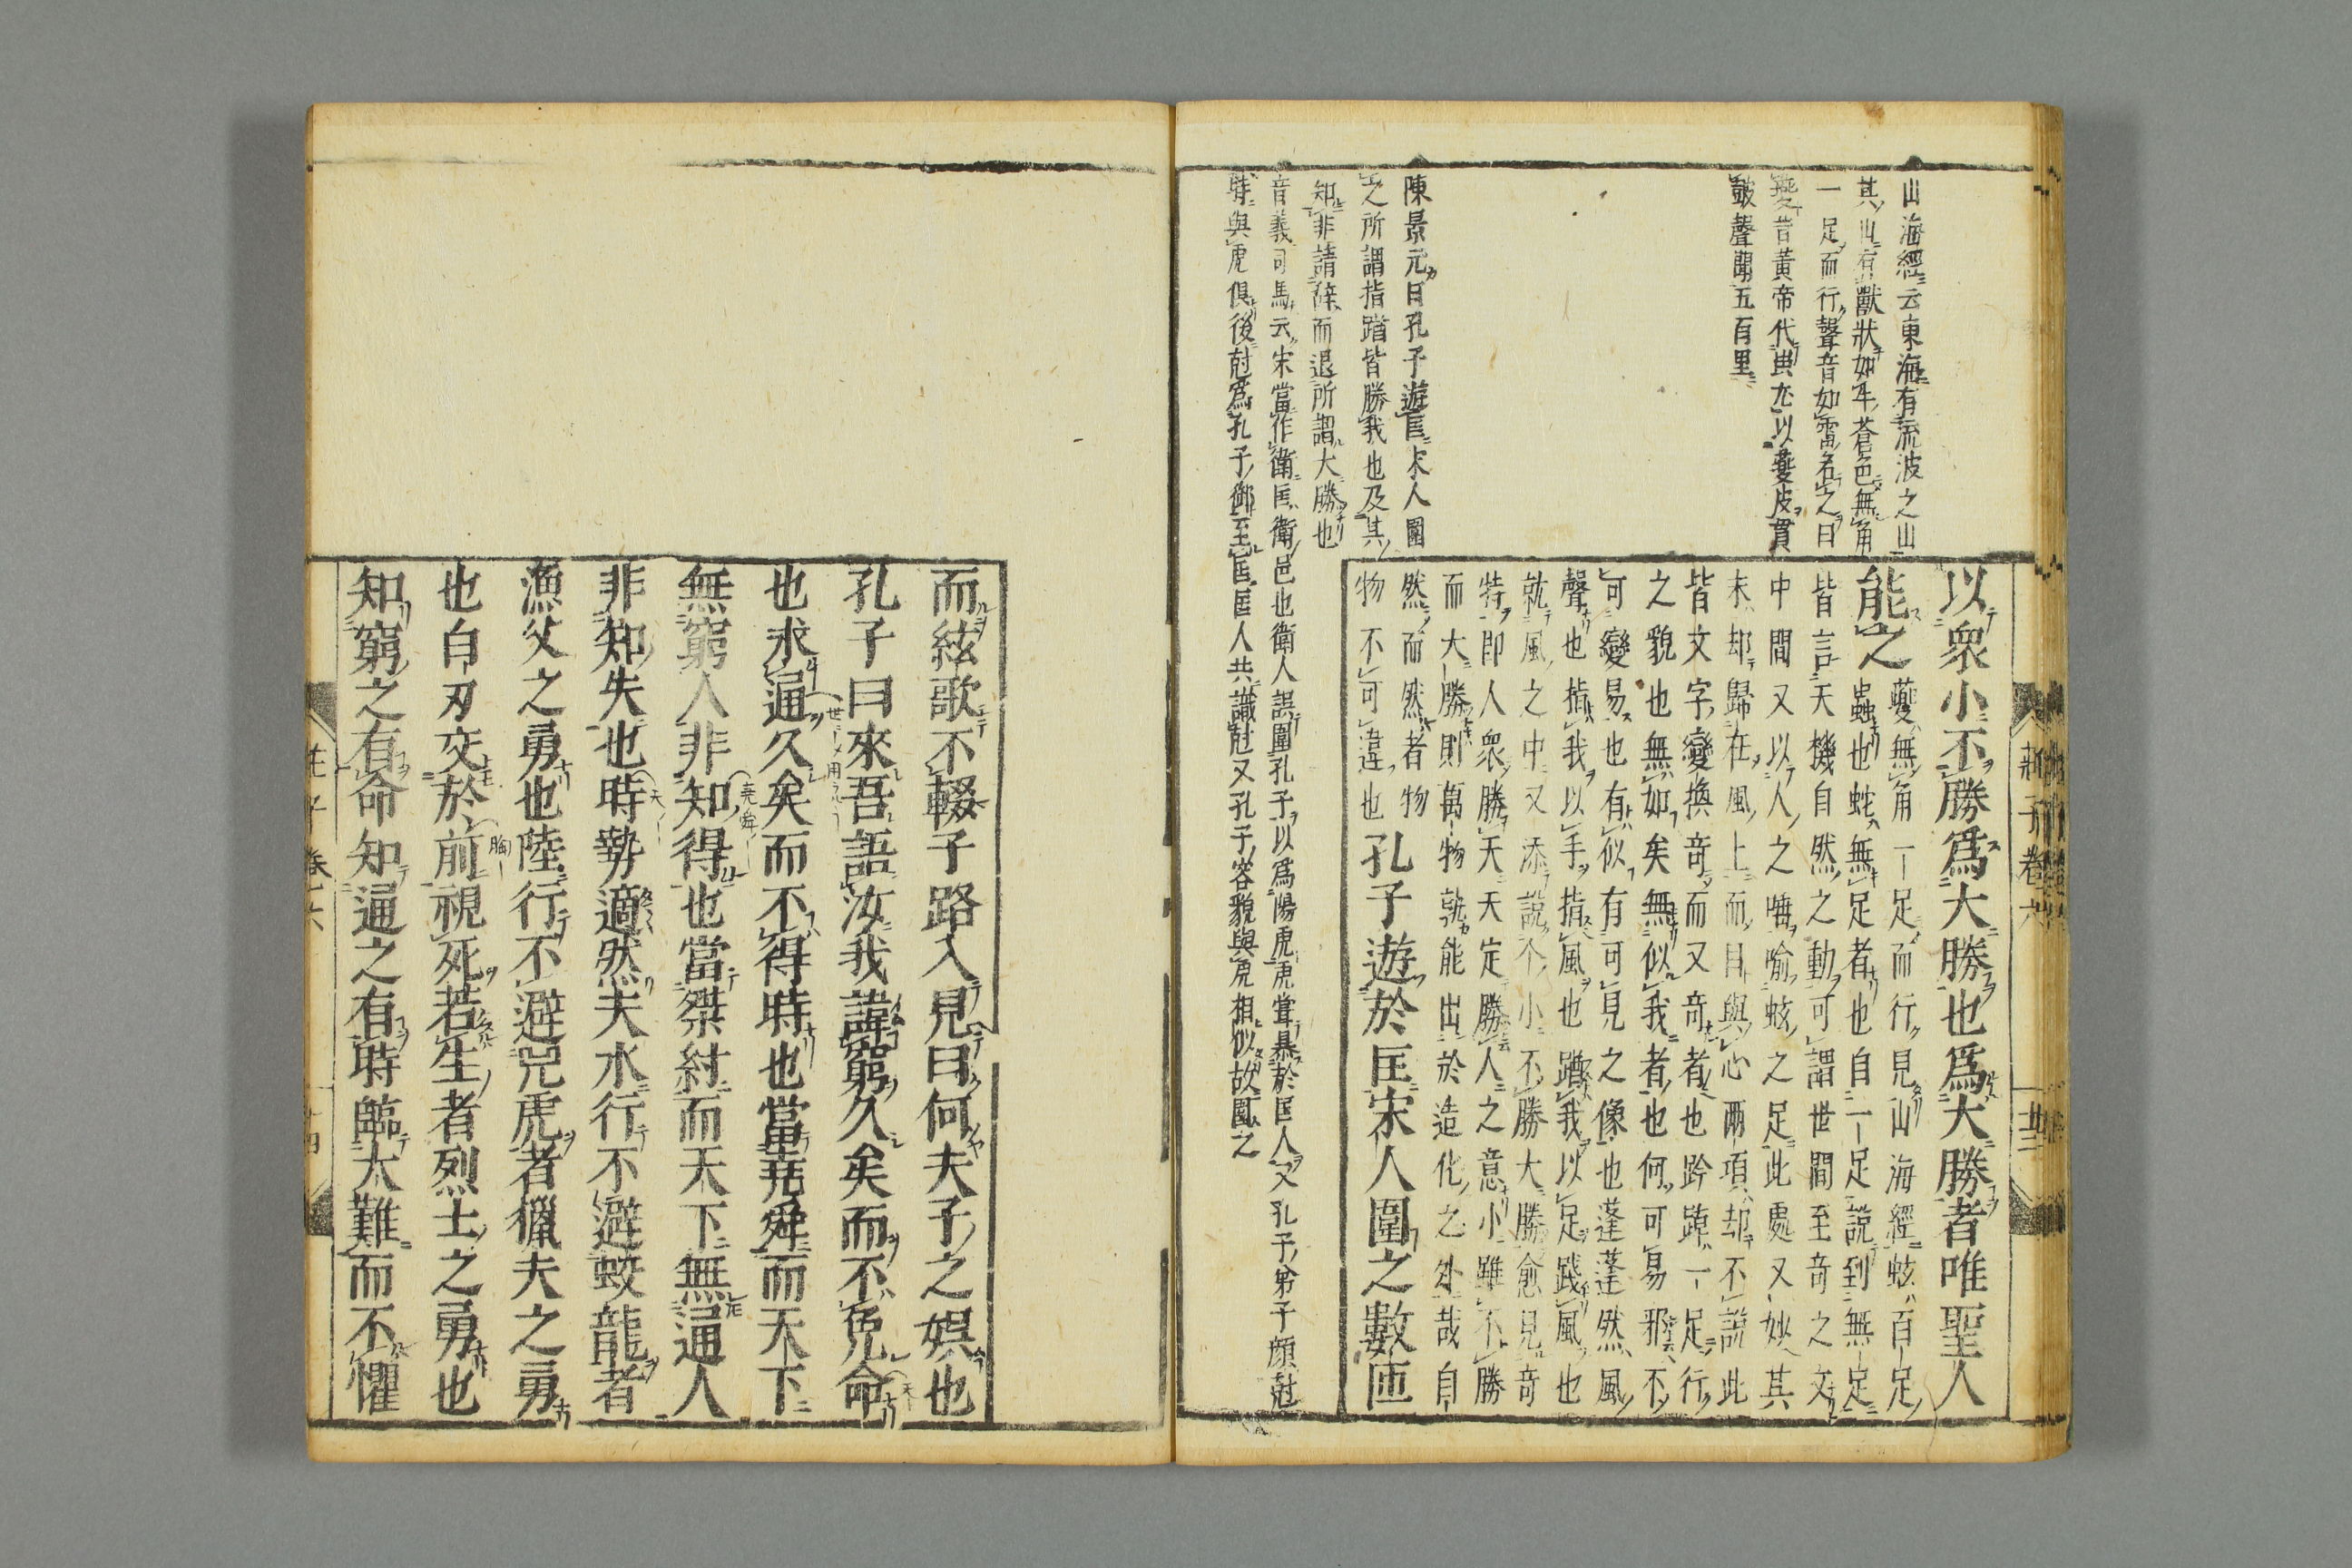 山海經云東海有流波之山
其山有獸狀如牛蒼色無角
一足而行聲音如雷名之曰
夔昔黃帝代
以夔皮貫
皷聲聞五百里
陳景元曰孔子遊匡宋人圍
之所謂指蹈皆勝我也及其
知非請辭而退所謂大勝也
音義司馬云宋當作衛匡衛邑也衛人誤圍孔子以爲陽虎虎甞暴於匡人又孔子弟子顔尅
時與虎俱後尅爲孔子御至匡匡人共識尅又孔子容貌與虎相似故圍之
以衆小不勝爲大勝也爲大勝者唯聖人
能之
夔無角一足而行見山海經蚿百足
蟲也蛇無足者也自一足說到無足
皆言天機自然之動可謂世間至奇之文
中間又以人之唾喻蚿之足此處又妙其
末却歸在風上而目與心兩項却不說此
皆文字變換奇而又奇者也趻踔一足行
之貌也無如矣無似我者也何可易邪不
可變易也有似有可見之像也蓬蓬然風
聲也指我以手指風也蹈我以足踐風也
就風之中又添說不小不勝大勝愈見奇
特即人衆勝天天定勝人之意小雖不勝
而大勝則萬物孰能出於造化之外哉自
然而然者物
物不可違也
孔子遊於匡宋人圍之數匝
莊子卷六
廿三
而絃歌不輟子路入見曰何夫子之娛也
孔子曰來吾語汝我諱窮久矣而不免命
也求通久矣而不得時也當堯舜而天下
無窮人非知得也當桀紂而天下無通人
非知失也時勢適然夫水行不避蛟龍者
漁父之勇也陸行不避兕虎者獵夫之勇
也白刃交於前視死若生者烈士之勇也
知窮之有命知通之有時臨大難而不懼
莊子卷六